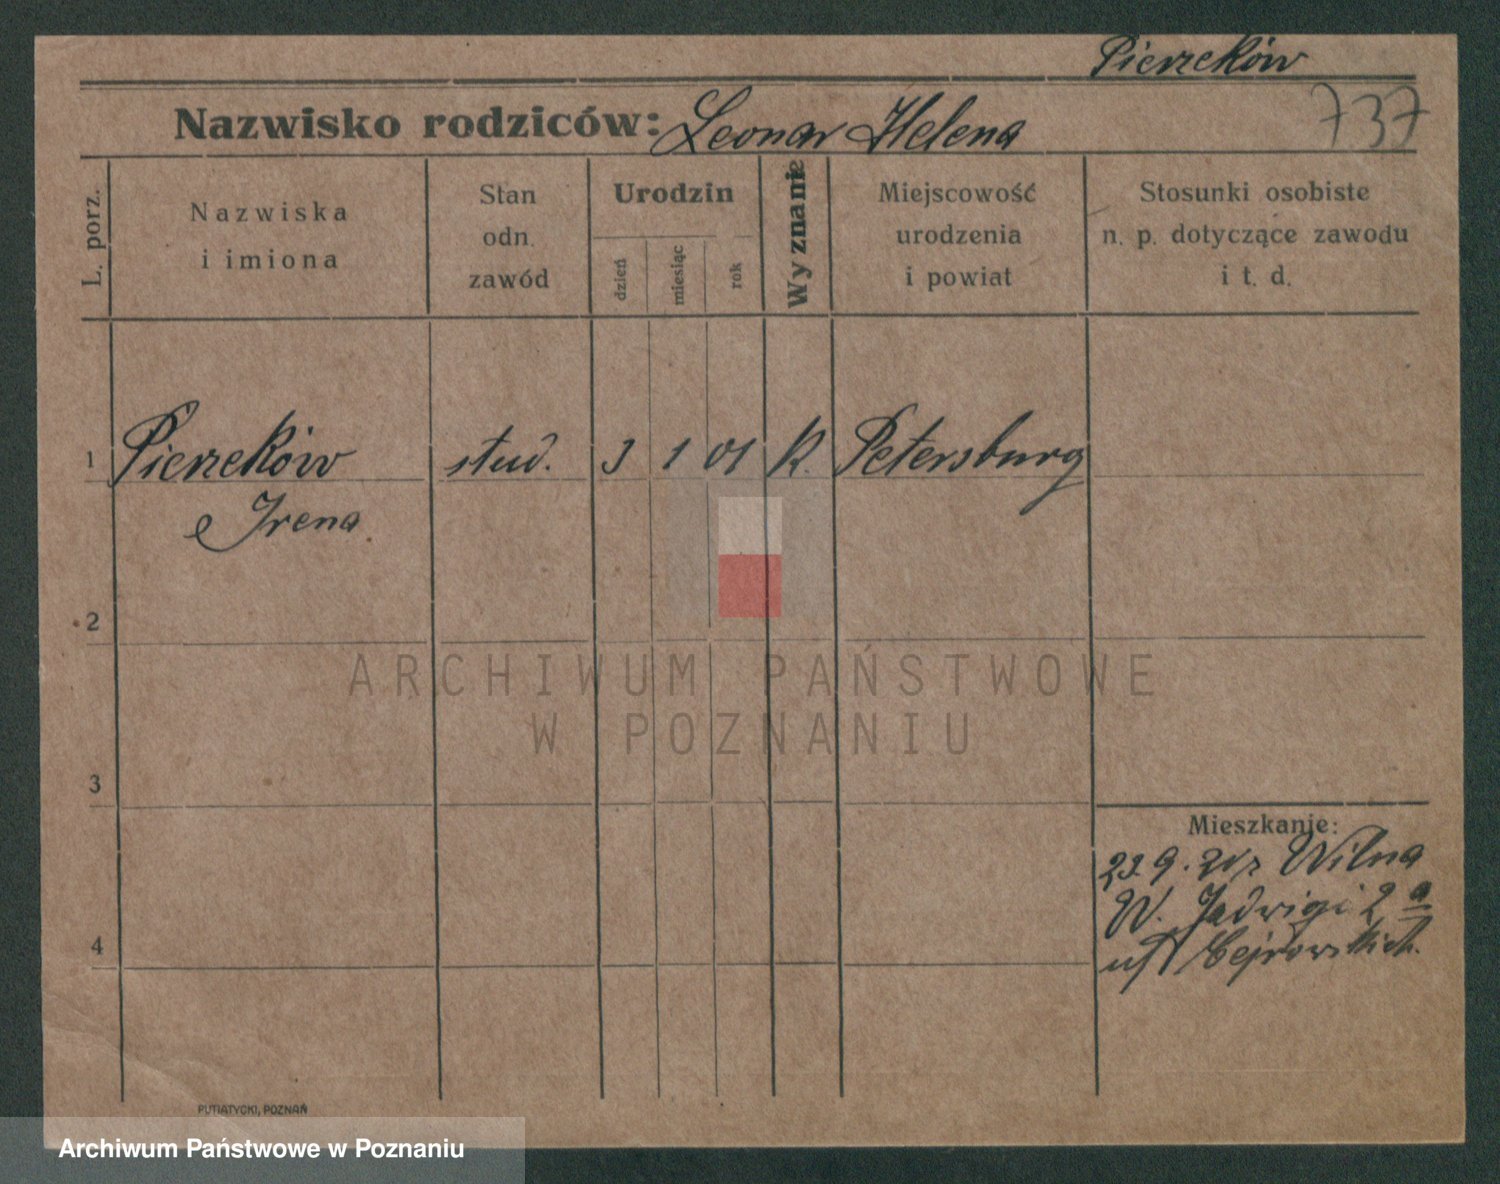 Pierzeków
Nazwisko rodziców: Leonar Helena
737
L. porz.
Nazwiska
i imiona
Stan
odn.
zawód
Urodzin
dzień
miesiąc
rok
Wyznanie
Miejscowość
urodzenia
i powiat
Stosunki osobiste
n. p. dotyczące zawodu
i t. d.
1 Pierzeków stud. 3 1 01 K. Petersburg
Irena
2
ARCHIWUM PAŃSTWOWE
W POZNANIU
3
Mieszkanie:
23.9. Wilna
W. Jadwigi 2a
Cejrowskich.
4
PUTIATYCKI, POZNAŃ
Archiwum Państwowe w Poznaniu